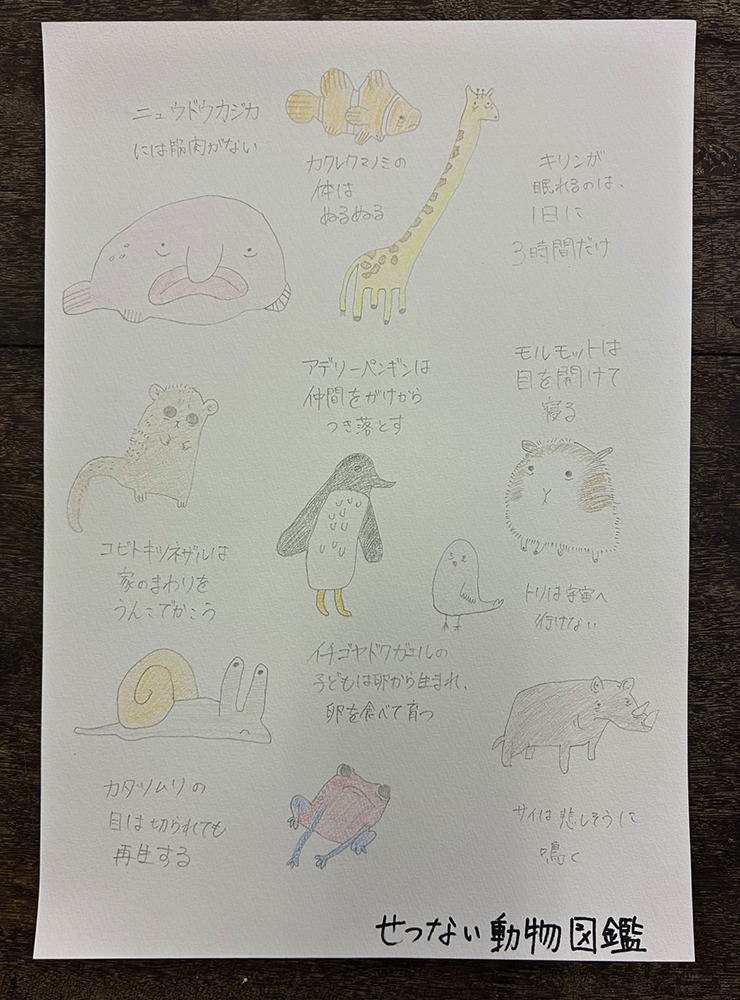 ニュウドウカジカ
には筋肉がない
カクレクマノミの
体は
ぬるぬる
キリンが
眠れるのは、
1日に
3時間だけ
アデリーペンギンは
仲間をがけから
つき落とす
モルモットは
目を開けて
寝る
コビトキツネザルは
家のまわりを
うんこでかこう
トリは宇宙へ
行けない
イチゴヤドクガエルの
子どもは卵から生まれ、
卵を食べて育つ
カタツムリの
目は切られても
再生する
サイは悲しそうに
鳴く
せつない動物図鑑